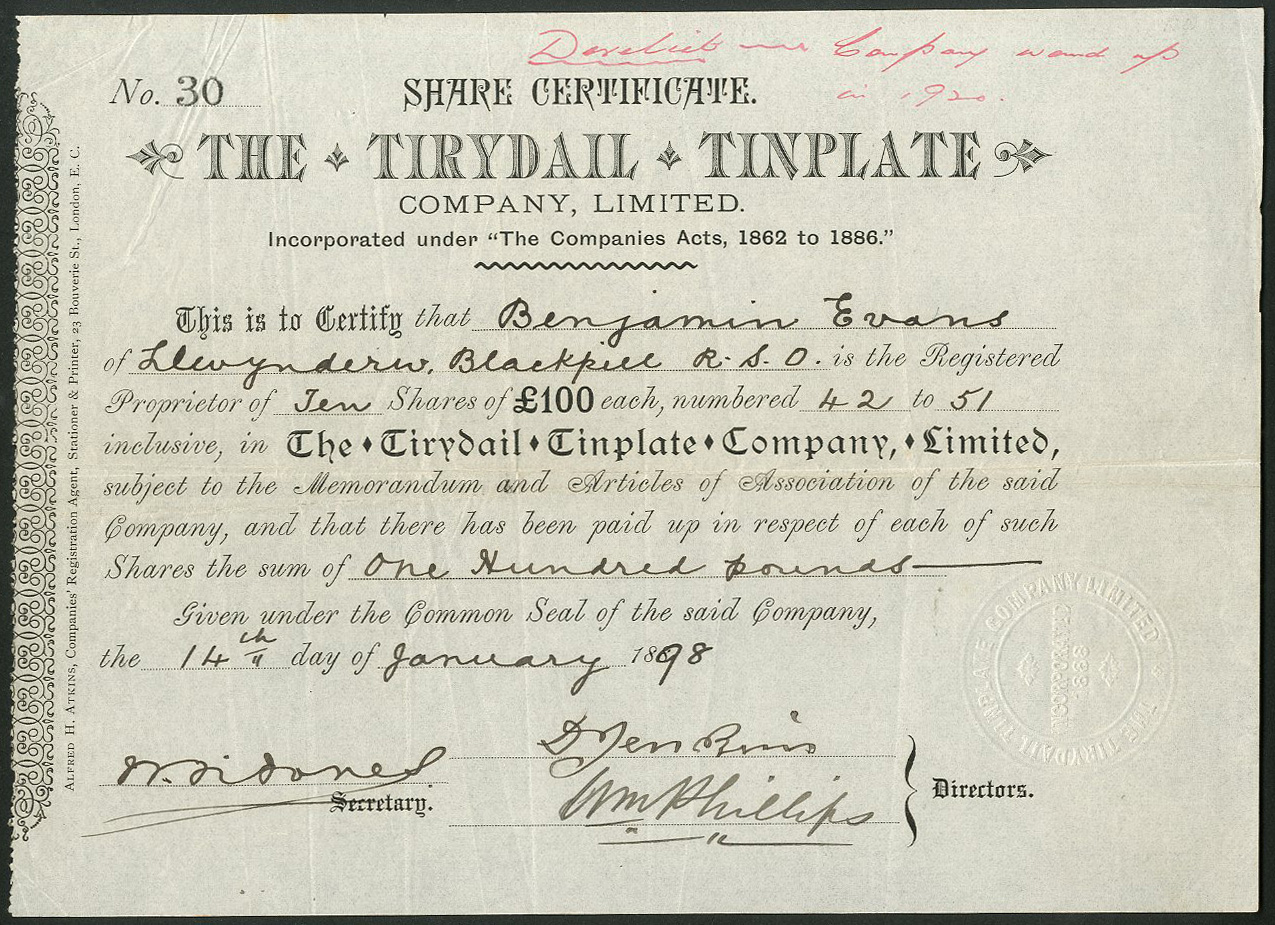 Company wound up
in 1920.
No. 30
SHARE CERTIFICATE.
THE TIRYDAIL TINPLATE
COMPANY, LIMITED.
Incorporated under “The Companies Acts, 1862 to 1886.”
This is to Certify that Benjamin Evans
of Llwynderw, Blackpill R. S. O. is the Registered
Proprietor of Ten Shares of £100 each, numbered 42 to 51
inclusive, in The Tirydail Tinplate Company, Limited,
subject to the Memorandum and Articles of Association of the said
Company, and that there has been paid up in respect of each of such
Shares the sum of One Hundred pounds
Given under the Common Seal of the said Company,
the 14th day of January 1898
D Jenkins
Wm Phillips
Secretary.
Directors.
THE TIRYDAIL TINPLATE COMPANY LIMITED
INCORPORATED
1888
ALFRED H. ATKINS, Companies' Registration Agent, Stationer & Printer, 23 Bouverie St., London, E. C.